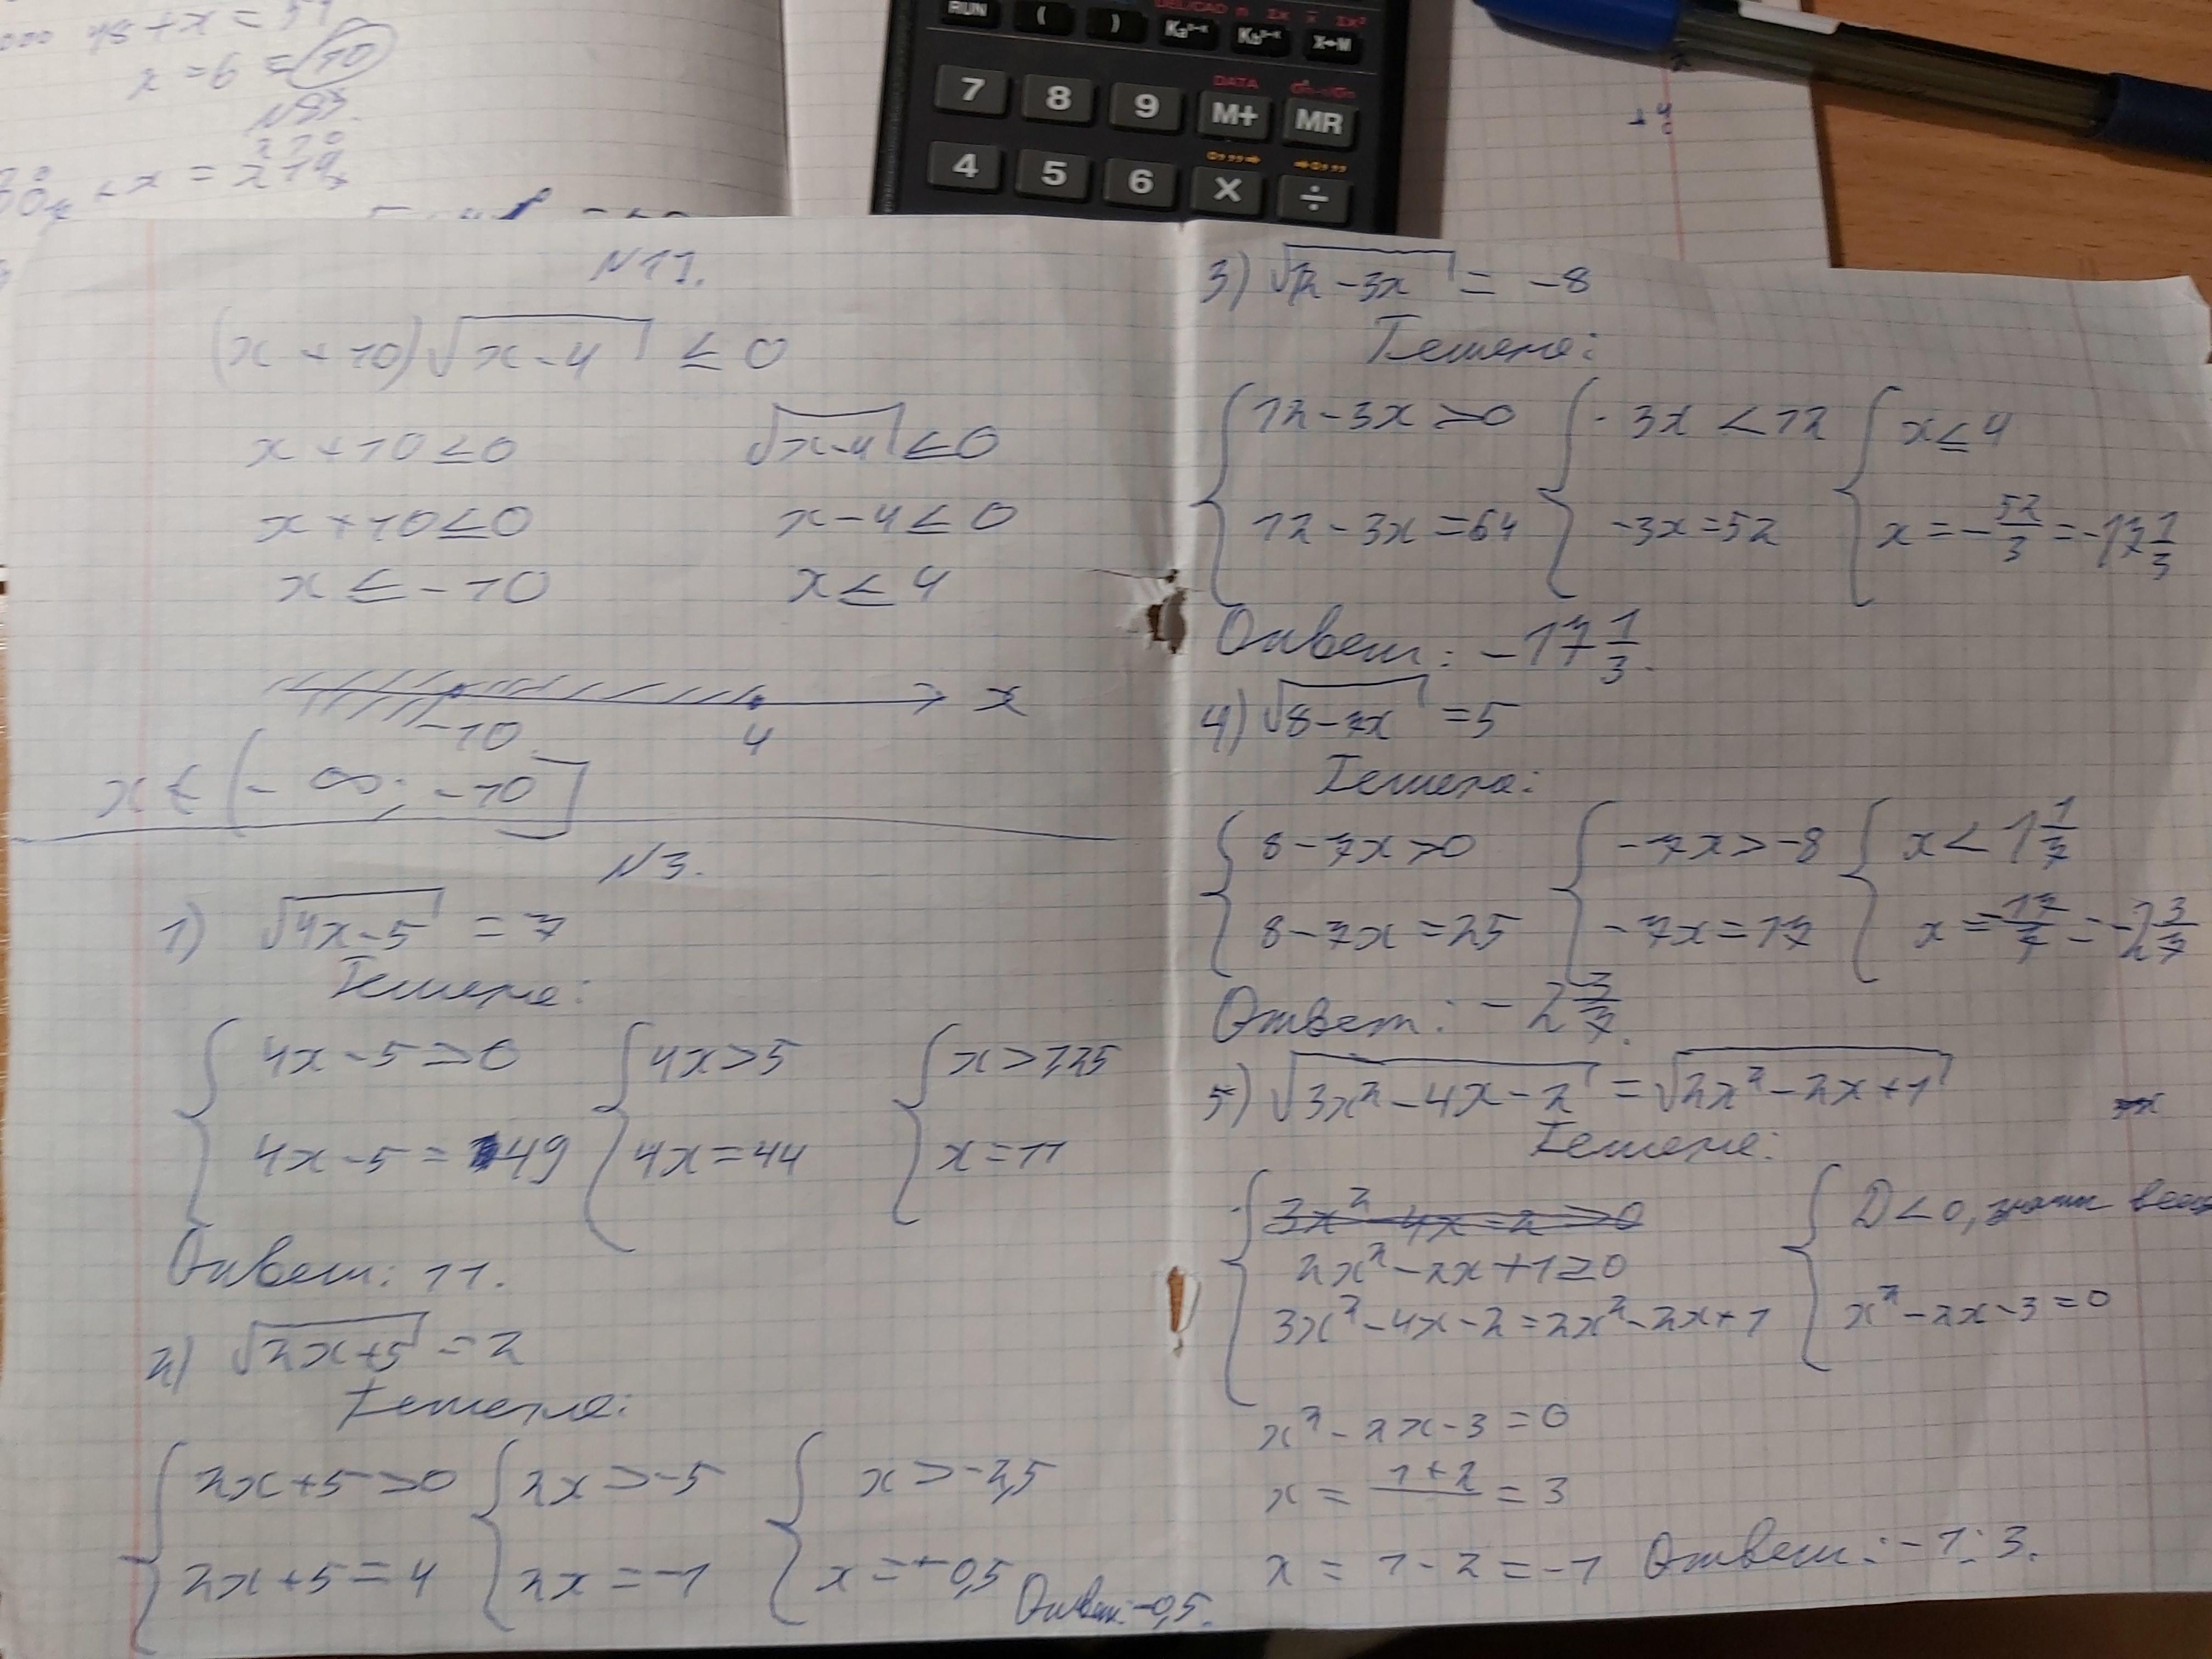 48+x=54
x=6=10
N93.
220
+x=219
RUN ( ) Kaˣ⁻ˣ Kbˣ⁻ˣ X↔M
DATA
7 8 9 M+ MR
4 5 6 X ÷
N11.
(x+10)√x-4 ≤ 0
x+10≤0 √x-4 ≤0
x+10≤0 x-4≤0
x≤-10 x≤4
-10 4 x
x∈(-∞;-10]
N3.
1) √4x-5 =7
Решение:
{4x-5>0 {4x>5 {x>1,25
4x-5=49 4x=44 x=11
Ответ: 11.
2) √2x+5 =2
Решение:
{2x+5>0 {2x>-5 {x>-2,5
2x+5=4 2x=-1 x=-0,5
Ответ: -0,5.
3) √12-3x = -8
Решение:
{12-3x>0 {-3x<12 {x≤4
12-3x=64 -3x=52 x=-52/3=-17 1/3
Ответ: -17 1/3.
4) √8-7x =5
Решение:
{8-7x>0 {-7x>-8 {x<1 1/7
8-7x=25 -7x=17 x=-17/7=-2 3/7
Ответ: -2 3/7.
5) √3x²-4x-2 = √2x²-2x+1
Решение:
3x²-4x-2>0 {D<0,
2x²-2x+1≥0
3x²-4x-2=2x²-2x+1 x²-2x-3=0
x²-2x-3=0
x=1+2=3
x=1-2=-1 Ответ: -1; 3.